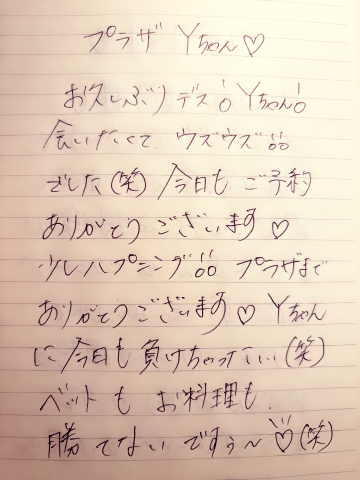 プラザ Yちゃん♡
お久しぶりデス!Yちゃん!
会いたくて、ウズウズ!!
でした(笑)今日もご予約
ありがとうございます♡
少しハプニング!!プラザまで
ありがとうございます♡Yちゃん
に今日も負けちゃって
(笑)
ベットもお料理も、
勝てないですぅ〜♡(笑)